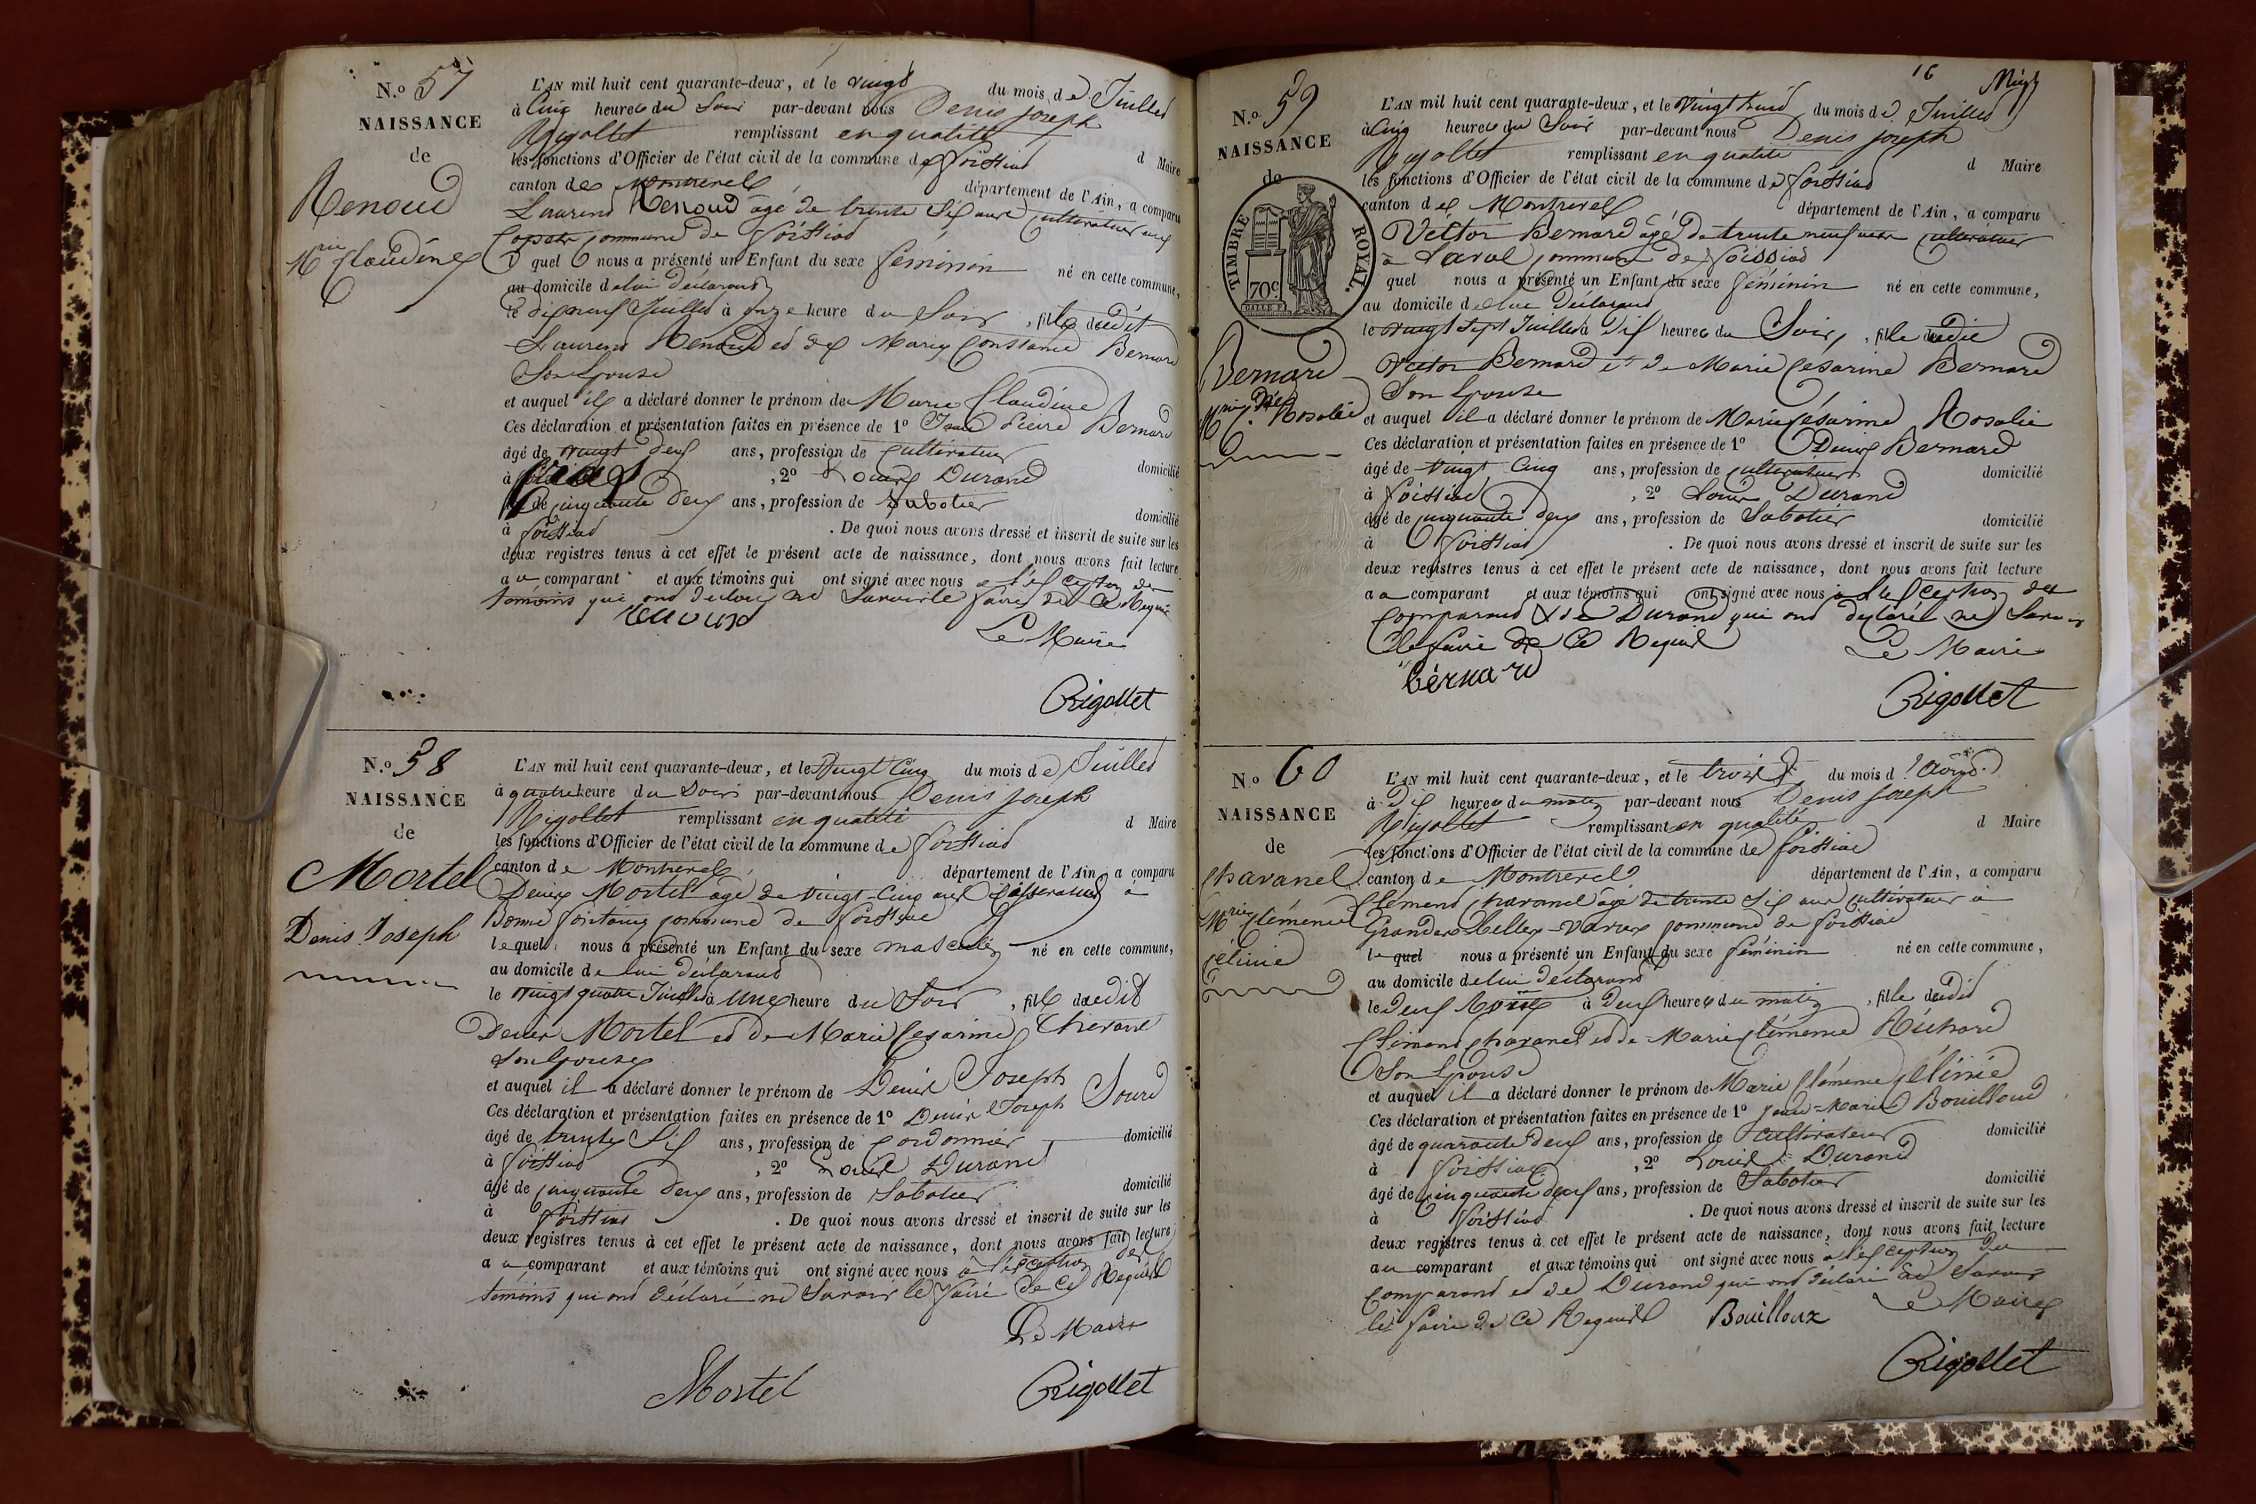 N.º 57
NAISSANCE
de
Renoud
Mrie Claudine
L'AN mil huit cent quarante-deux, et le vingt du mois de Juillet
à Cinq heures du Soir par-devant nous Denis joseph
Rigollet remplissant en qualité d Maire
les fonctions d'Officier de l'état civil de la commune de foissiat
canton de Montrevel département de l'Ain, a comparu
Laurend Renoud âgé de trente Six ans Cultivateur
commune de foissiat
quel nous a présenté un Enfant du sexe féminin né en cette commune,
au domicile de lui déclarant
le dix neuf Juillet à onze heure du Soir, fille dudit
Laurend Renoud et de Marie Constance Bernard
Son Epouse
et auquel il a déclaré donner le prénom de Marie Claudine
Ces déclaration et présentation faites en présence de 1º Pierre Bernard
âgé de vingt deux ans, profession de cultivateur domicilié
à , 2º Louis Durand
âgé de cinquante deux ans, profession de Sabotier domicilié
à foissiat . De quoi nous avons dressé et inscrit de suite sur les
deux registres tenus à cet effet le présent acte de naissance, dont nous avons fait lecture
au comparant et aux témoins qui ont signé avec nous à l'exception de
témoins qui ont déclaré ne Savoir le faire de ce Requis
renoux
Le Maire
Rigollet
N.º 58
NAISSANCE
de
Mortel
Denis Joseph
L'AN mil huit cent quarante-deux, et le Vingt Cinq du mois de Juillet
à quatre heure du Soir par-devant nous Denis joseph
Rigollet remplissant en qualité d Maire
les fonctions d'Officier de l'état civil de la commune de foissiat
canton de Montrevel département de l'Ain, a comparu
Denis Mortel âgé de vingt-Cinq ans à
Bonne fontaine commune de foissiat
lequel nous a présenté un Enfant du sexe masculin né en cette commune,
au domicile de lui déclarant
le vingt quatre Juillet à une heure du Soir, fils dudit
Denis Mortel et de Marie Cesarine
Son Epouse
et auquel il a déclaré donner le prénom de Denis Joseph
Ces déclaration et présentation faites en présence de 1º Denis Joseph
âgé de trente Six ans, profession de Cordonnier domicilié
à foissiat , 2º Louis Durand
âgé de cinquante deux ans, profession de Sabotier domicilié
à foissiat . De quoi nous avons dressé et inscrit de suite sur les
deux registres tenus à cet effet le présent acte de naissance, dont nous avons fait lecture
au comparant et aux témoins qui ont signé avec nous à l'exception des
témoins qui ont déclaré ne Savoir le faire de ce Requis
Le Maire
Mortel
Rigollet
16
N.º 59
NAISSANCE
de
TIMBRE ROYAL.
70c
Bernard
Rosalie
L'AN mil huit cent quarante-deux, et le vingt huit du mois de Juillet
à Cinq heures du Soir par-devant nous Denis joseph
Rigollet remplissant en qualité d Maire
les fonctions d'Officier de l'état civil de la commune de foissiat
canton de Montrevel département de l'Ain, a comparu
Victor Bernard âgé de trente neuf ans cultivateur
à Laval commune de foissiat
quel nous a présenté un Enfant du sexe féminin né en cette commune,
au domicile de lui déclarant
le vingt Sept Juillet à dix heures du Soir, fille dudit
Victor Bernard et de Marie Césarine Bernard
Son Epouse
et auquel il a déclaré donner le prénom de Marie Césarine Rosalie
Ces déclaration et présentation faites en présence de 1º Denis Bernard
âgé de vingt Cinq ans, profession de cultivateur domicilié
à foissiat , 2º Louis Durand
âgé de cinquante deux ans, profession de Sabotier domicilié
à foissiat . De quoi nous avons dressé et inscrit de suite sur les
deux registres tenus à cet effet le présent acte de naissance, dont nous avons fait lecture
au comparant et aux témoins qui ont signé avec nous à l'exception du
comparant & de Durand qui ont déclaré ne Savoir
le faire de ce Requis
Le Maire
bérnard
Rigollet
Nº 60
NAISSANCE
de
Chavanel
Mrie Clémence
Céline
L'AN mil huit cent quarante-deux, et le trois du mois d'Août
à Dix heures du matin par-devant nous Denis joseph
Rigollet remplissant en qualité d Maire
les fonctions d'Officier de l'état civil de la commune de foissiat
canton de Montrevel département de l'Ain, a comparu
Clémend Chavanel âgé de trente Six ans cultivateur à
commune de foissiat
lequel nous a présenté un Enfant du sexe féminin né en cette commune,
au domicile de lui déclarant
le Deux à Deux heures du matin, fille dudit
Clémend Chavanel et de Marie Clémence Richard
Son Epouse
et auquel il a déclaré donner le prénom de Marie Clémence Céline
Ces déclaration et présentation faites en présence de 1º Jean-Marie Bouilloud
âgé de quarante deux ans, profession de cultivateur domicilié
à foissiat , 2º Louis Durand
âgé de cinquante deux ans, profession de Sabotier domicilié
à foissiat . De quoi nous avons dressé et inscrit de suite sur les
deux registres tenus à cet effet le présent acte de naissance, dont nous avons fait lecture
au comparant et aux témoins qui ont signé avec nous à l'exception du
comparant et de Durand qui ont déclaré ne Savoir
le faire de ce Requis Bouilloux Le Maire
Rigollet